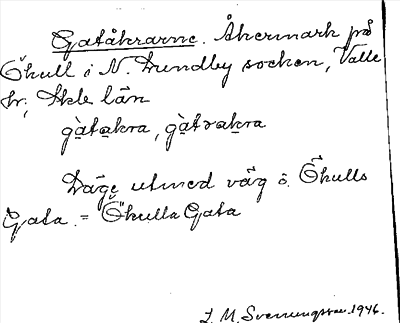 Gatåkrarne. Åkermark på
Ökull i N. Lundby socken, Valle
hr; Skb län
gàtakra, gàtrakra
Läge utmed väg o. Ökulls
Gata. = Ökulla Gata
L. M. Svenungsson. 1946.